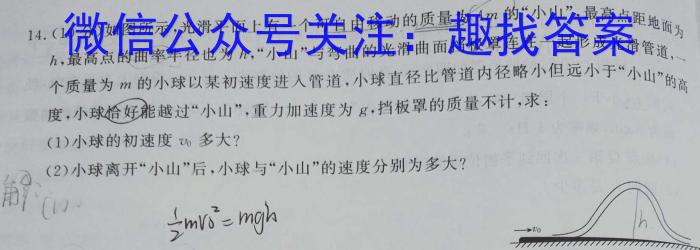 14.(1 分)如图所示,光滑平面上有一个可自由移动的质量为 m的“小山”,最高点距地面为
微信公众号关注:趣找答案
h,最高点的曲率半径也为h,“小山”与弯曲的光滑曲面挡板罩连在一起形成光滑管道,一
个质量为 m 的小球以某初速度进入管道,小球直径比管道内径略小但远小于“小山”的高
度,小球恰好能越过“小山”,重力加速度为 g,挡板罩的质量不计,求:
(1)小球的初速度 v₀ 多大?
(2)小球离开“小山”后,小球与“小山”的速度分别为多大?
解: (1).
½mv₀²=mgh
v₀
h